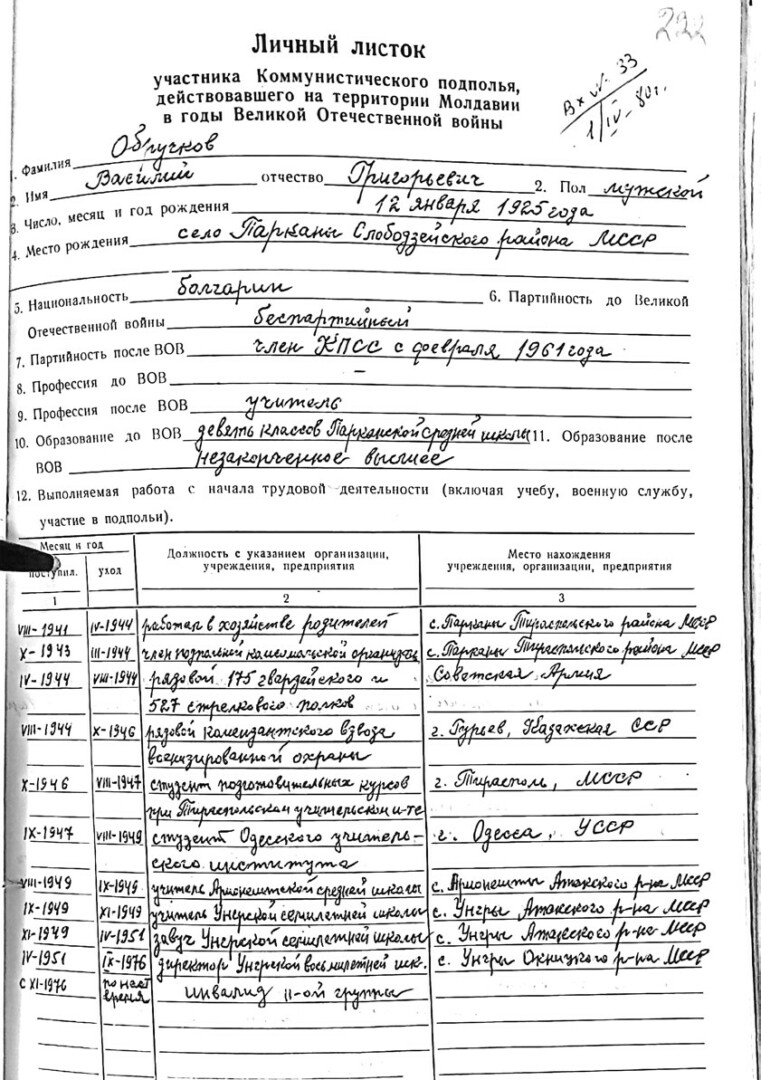 232
Личный листок
участника Коммунистического подполья,
действовавшего на территории Молдавии
в годы Великой Отечественной войны
Вх №. 33
1/IV-80г.
1. Фамилия Обручков
2. Имя Василий отчество Григорьевич 2. Пол мужской
3. Число, месяц и год рождения 12 января 1925 года
4. Место рождения село Парканы Слободзейского района МССР
5. Национальность болгарин 6. Партийность до Великой
Отечественной войны беспартийный
7. Партийность после ВОВ член КПСС с февраля 1961 года
8. Профессия до ВОВ –
9. Профессия после ВОВ учитель
10. Образование до ВОВ девять классов Парканской средней школы 11. Образование после
ВОВ незаконченное высшее
12. Выполняемая работа с начала трудовой деятельности (включая учебу, военную службу,
участие в подпольи).
Месяц и год Должность с указанием организации, учреждения, предприятия Место нахождения учреждения, организации, предприятия
поступил. уход
1 2 3
VIII-1941 IV-1944 работал в хозяйстве родителей с. Парканы Тираспольского района МССР
X-1943 III-1944 член подпольной комсомольской организ. с. Парканы Тираспольского района МССР
IV-1944 VIII-1944 рядовой 175 гвардейского и Советская Армия
527 стрелкового полков
VIII-1944 X-1946 рядовой комендантского взвода г. Гурьев, Казахская ССР
военизированной охраны
X-1946 VIII-1947 студент подготовительных курсов г. Тирасполь, МССР
при Тираспольском учительском и-те
IX-1947 VIII-1949 студент Одесского учитель- г. Одесса, УССР
ского института
VIII-1949 IX-1949 учитель Арионештской средней школы с. Арионешты Атакского р-на МССР
IX-1949 XI-1949 учитель Унгрской семилетней школы с. Унгры Атакского р-на МССР
XI-1949 IV-1951 завуч Унгрской семилетней школы с. Унгры Атакского р-на МССР
IV-1951 IX-1976 директор Унгрской восьмилетней шк. с. Унгры Окницкого р-на МССР
с XI-1976 по наст время инвалид II-ой группы